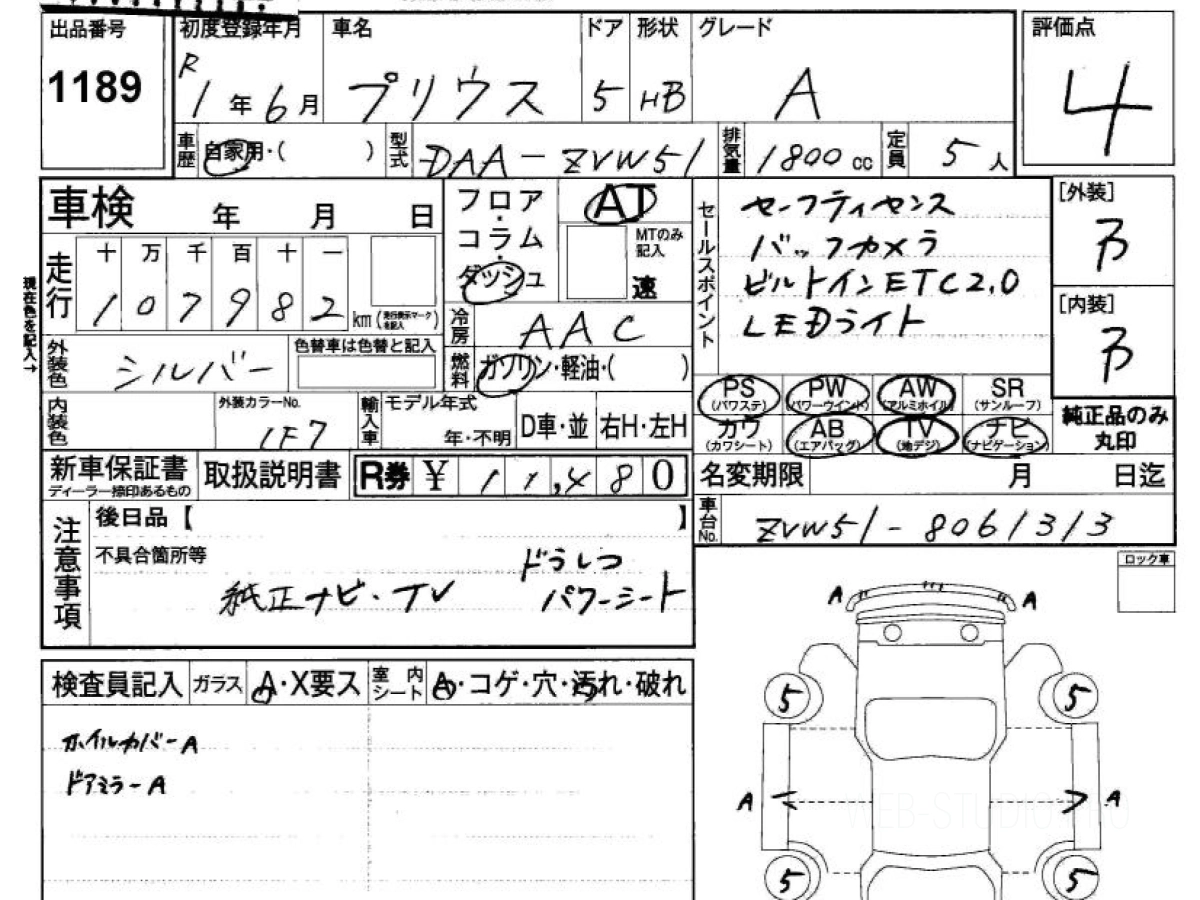 出品番号
1189
初度登録年月
R1年6月
車名
プリウス
ドア
5
形状
HB
グレード
A
評価点
4
車歴 自家用・( )
型式 DAA-ZVW51
排気量 1800cc
定員 5人
車検 年 月 日
フロア・コラム・ダッシュ
AT
MTのみ記入
速
セールスポイント
セーフティセンス
バックカメラ
ビルトインETC2.0
LEDライト
[外装]
B
[内装]
B
現在色を記入→
走行
十 万 千 百 十 一
1 0 7 9 8 2 km (走行表示マークを記入)
冷房 AAC
燃料 ガソリン・軽油・( )
外装色 シルバー
色替車は色替と記入
内装色
外装カラーNo.
1F7
輸入車
モデル年式
年・不明
D車・並
右H・左H
PS (パワステ)
PW (パワーウインド)
AW (アルミホイル)
SR (サンルーフ)
カワ (カワシート)
AB (エアバッグ)
TV (地デジ)
ナビ (ナビゲーション)
純正品のみ丸印
新車保証書
ディーラー捺印あるもの
取扱説明書
R券 ¥ 11,480
名変期限 月 日迄
車台No. ZVW51-8061313
注意事項
後日品【 】
不具合箇所等
ドラレコ
純正ナビ・TV パワーシート
ロック車
A A
検査員記入
ガラス A・X要ス
室内シート A・コゲ・穴・汚れ・破れ
ホイルカバーA
ドアミラーA
5 5
A A
WEB-STUDIO.PRO
5 5